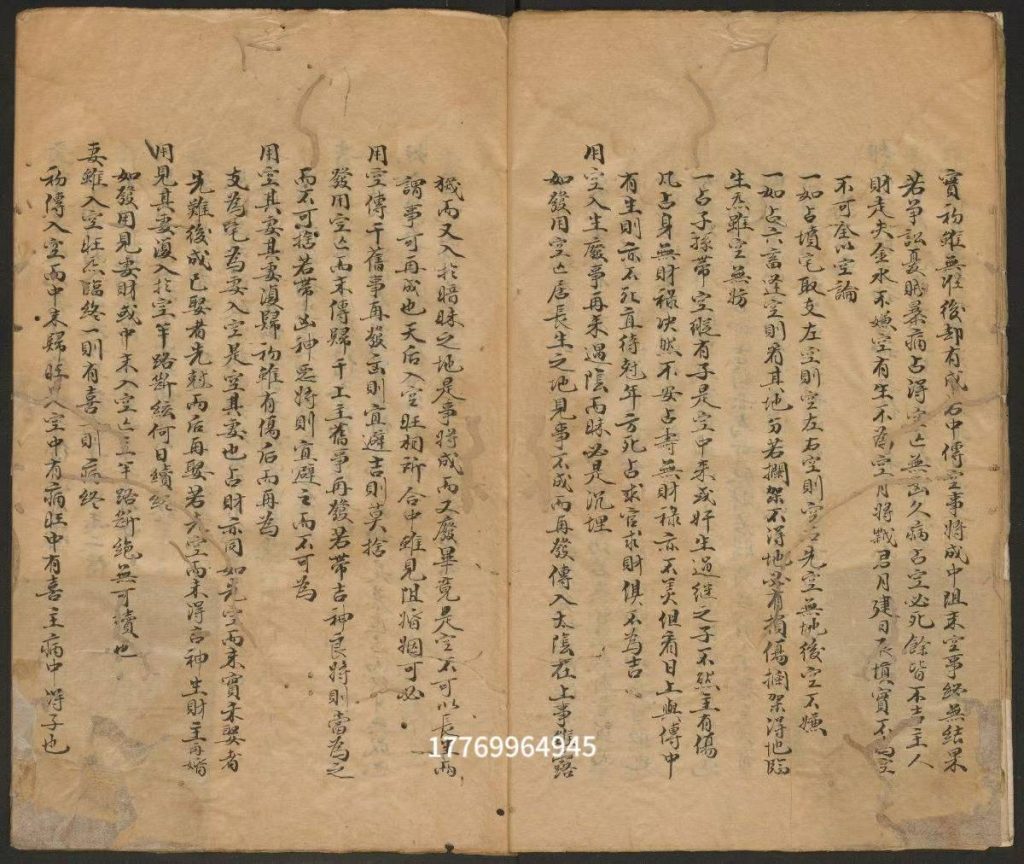 實初雖無後却有成若中傳空事將成中阻末空事終無結果
若爭訟憂賊暴病占得空亡無凶久病占空必死餘皆不吉主人
財走失金水不嫌空有生不為空月將歲君月建日辰填實不為空
不可全以空論
一如占墳宅取支左空則空左右空則空右先空無地後空不嫌
一如占六畜逢空則看其地方若攔架不得地必有損傷攔架得地臨
生炁雖空無妨
一占子孫帶空疑有子是空中來或奸生過繼之子不然主有傷
凡占身無財祿決然不安占壽無財祿亦不美但看日上與傳中
有生則亦不死直待尅年方死占求官求財俱不為吉
用空入生廢事再來遇陰而昧必是沉埋
如發用空亡居長生之地見事不成而再發傳入太陰在上事
機而又入於暗昧之地是事將成而又廢畢竟是空不可以長生而
謂事可再成也天后入空旺相所合中雖見阻婚姻可必
用空傳干舊事再發凶則宜避吉則莫捨
發用空亡而末傳歸干上主舊事再發若帶吉神良將則當為之
而不可捨若帶凶神惡將則宜避之而不可為
用空其妻其妻復歸初雖有傷后而再為
支為宅為妻入空是空其妻也占財亦同如先空而末實未娶者
先難後成已娶者先尅而后再娶若六空而末得吉神生財主再婚
用見其妻復入於空半路斷絃何日續終
如發用見妻財或中末入空亡主半路斷絕無可續也
妻雖入空旺炁臨終一則有喜一則病終
初傳入空而中末歸旺入空中有病旺中有喜主病中得子也
17769964945